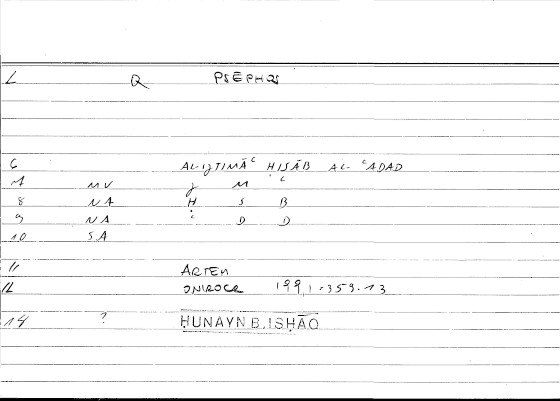 L Q PSĒPHOS
6 AL-IJTIMĀʿ ḤISĀB AL-ʿADAD
7 MV J M ʿ
8 NA Ḥ S B
9 NA ʿ D D
10 SA
11 ARTEM
12 ONIROCR 199,1-359.13
14 ? ḤUNAYN B. ISḤĀQ